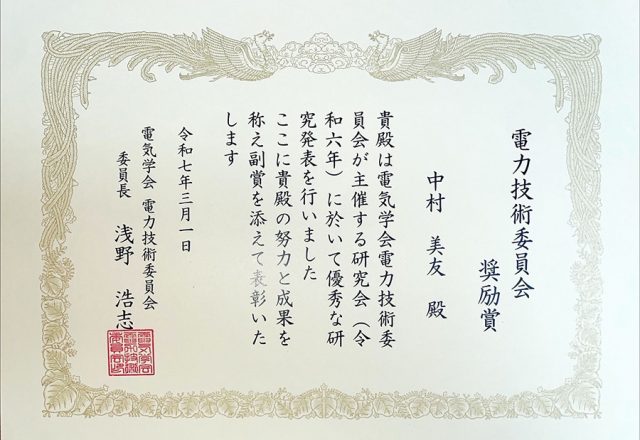 電力技術委員会
奨励賞
中村 美友 殿
貴殿は電気学会電力技術委
員会が主催する研究会（令
和六年）に於いて優秀な研
究発表を行いました
ここに貴殿の努力と成果を
称え副賞を添えて表彰いた
します
令和七年三月一日
電気学会 電力技術委員会
委員長 浅野 浩志